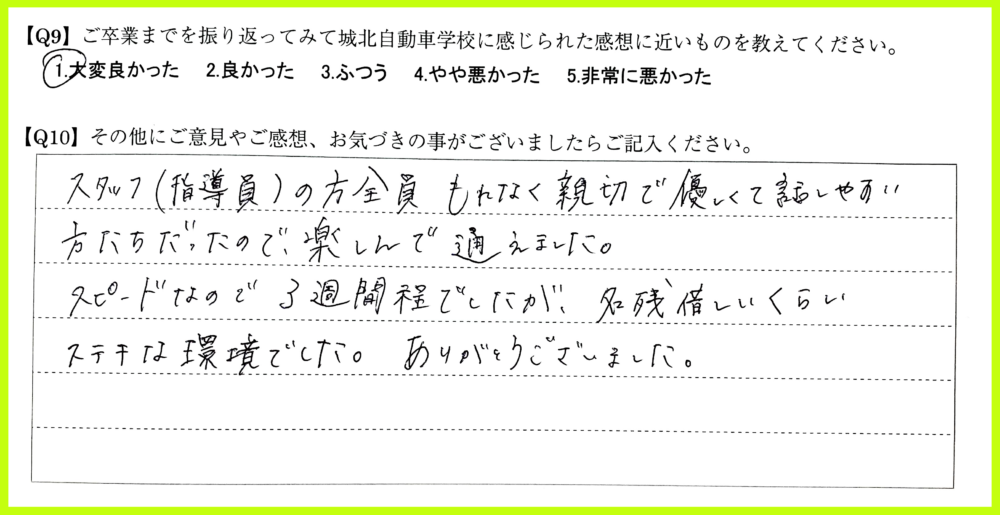 【Q9】ご卒業までを振り返ってみて城北自動車学校に感じられた感想に近いものを教えてください。
1.大変良かった 2.良かった 3.ふつう 4.やや悪かった 5.非常に悪かった
【Q10】その他にご意見やご感想、お気づきの事がございましたらご記入ください。
スタッフ(指導員)の方全員もれなく親切で優しくて話しやすい
方たちだったので、楽しんで通えました。
スピードなので3週間程でしたが、名残惜しいくらい
ステキな環境でした。ありがとうございました。